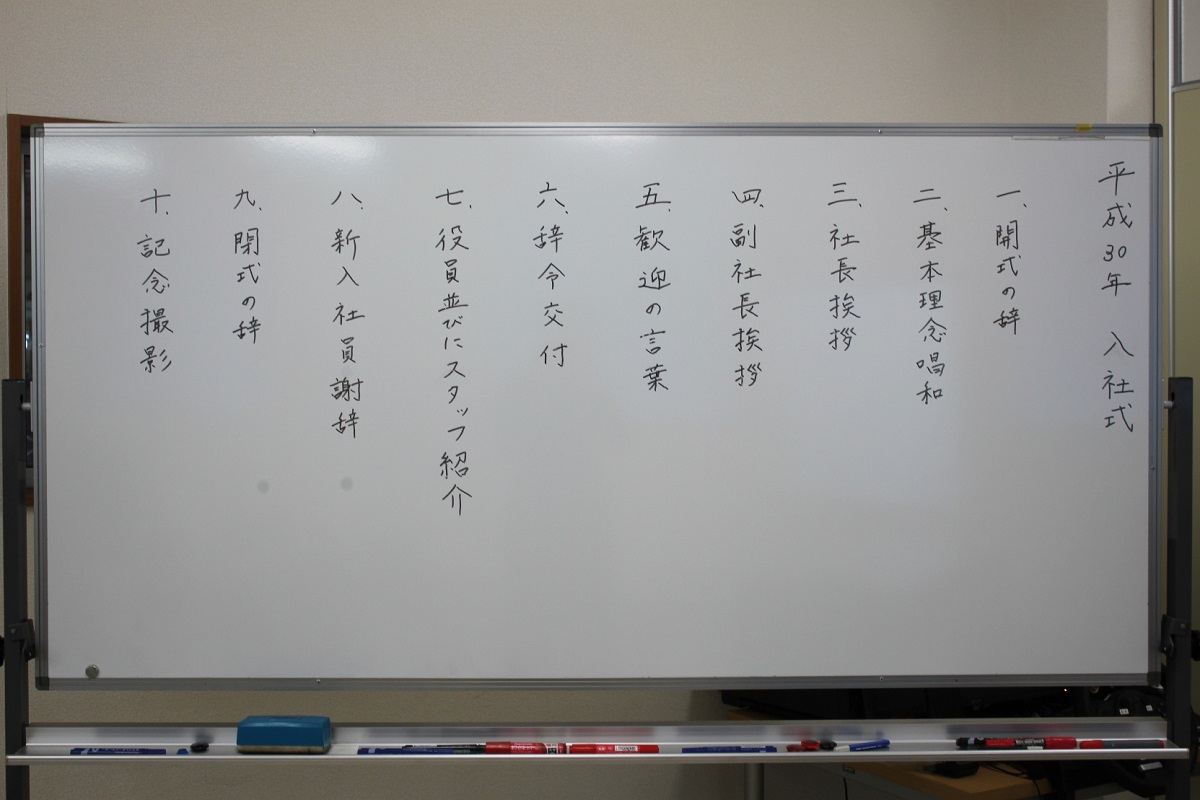 平成30年 入社式
一、開式の辞
二、基本理念唱和
三、社長挨拶
四、副社長挨拶
五、歓迎の言葉
六、辞令交付
七、役員並びにスタッフ紹介
八、新入社員謝辞
九、閉式の辞
十、記念撮影